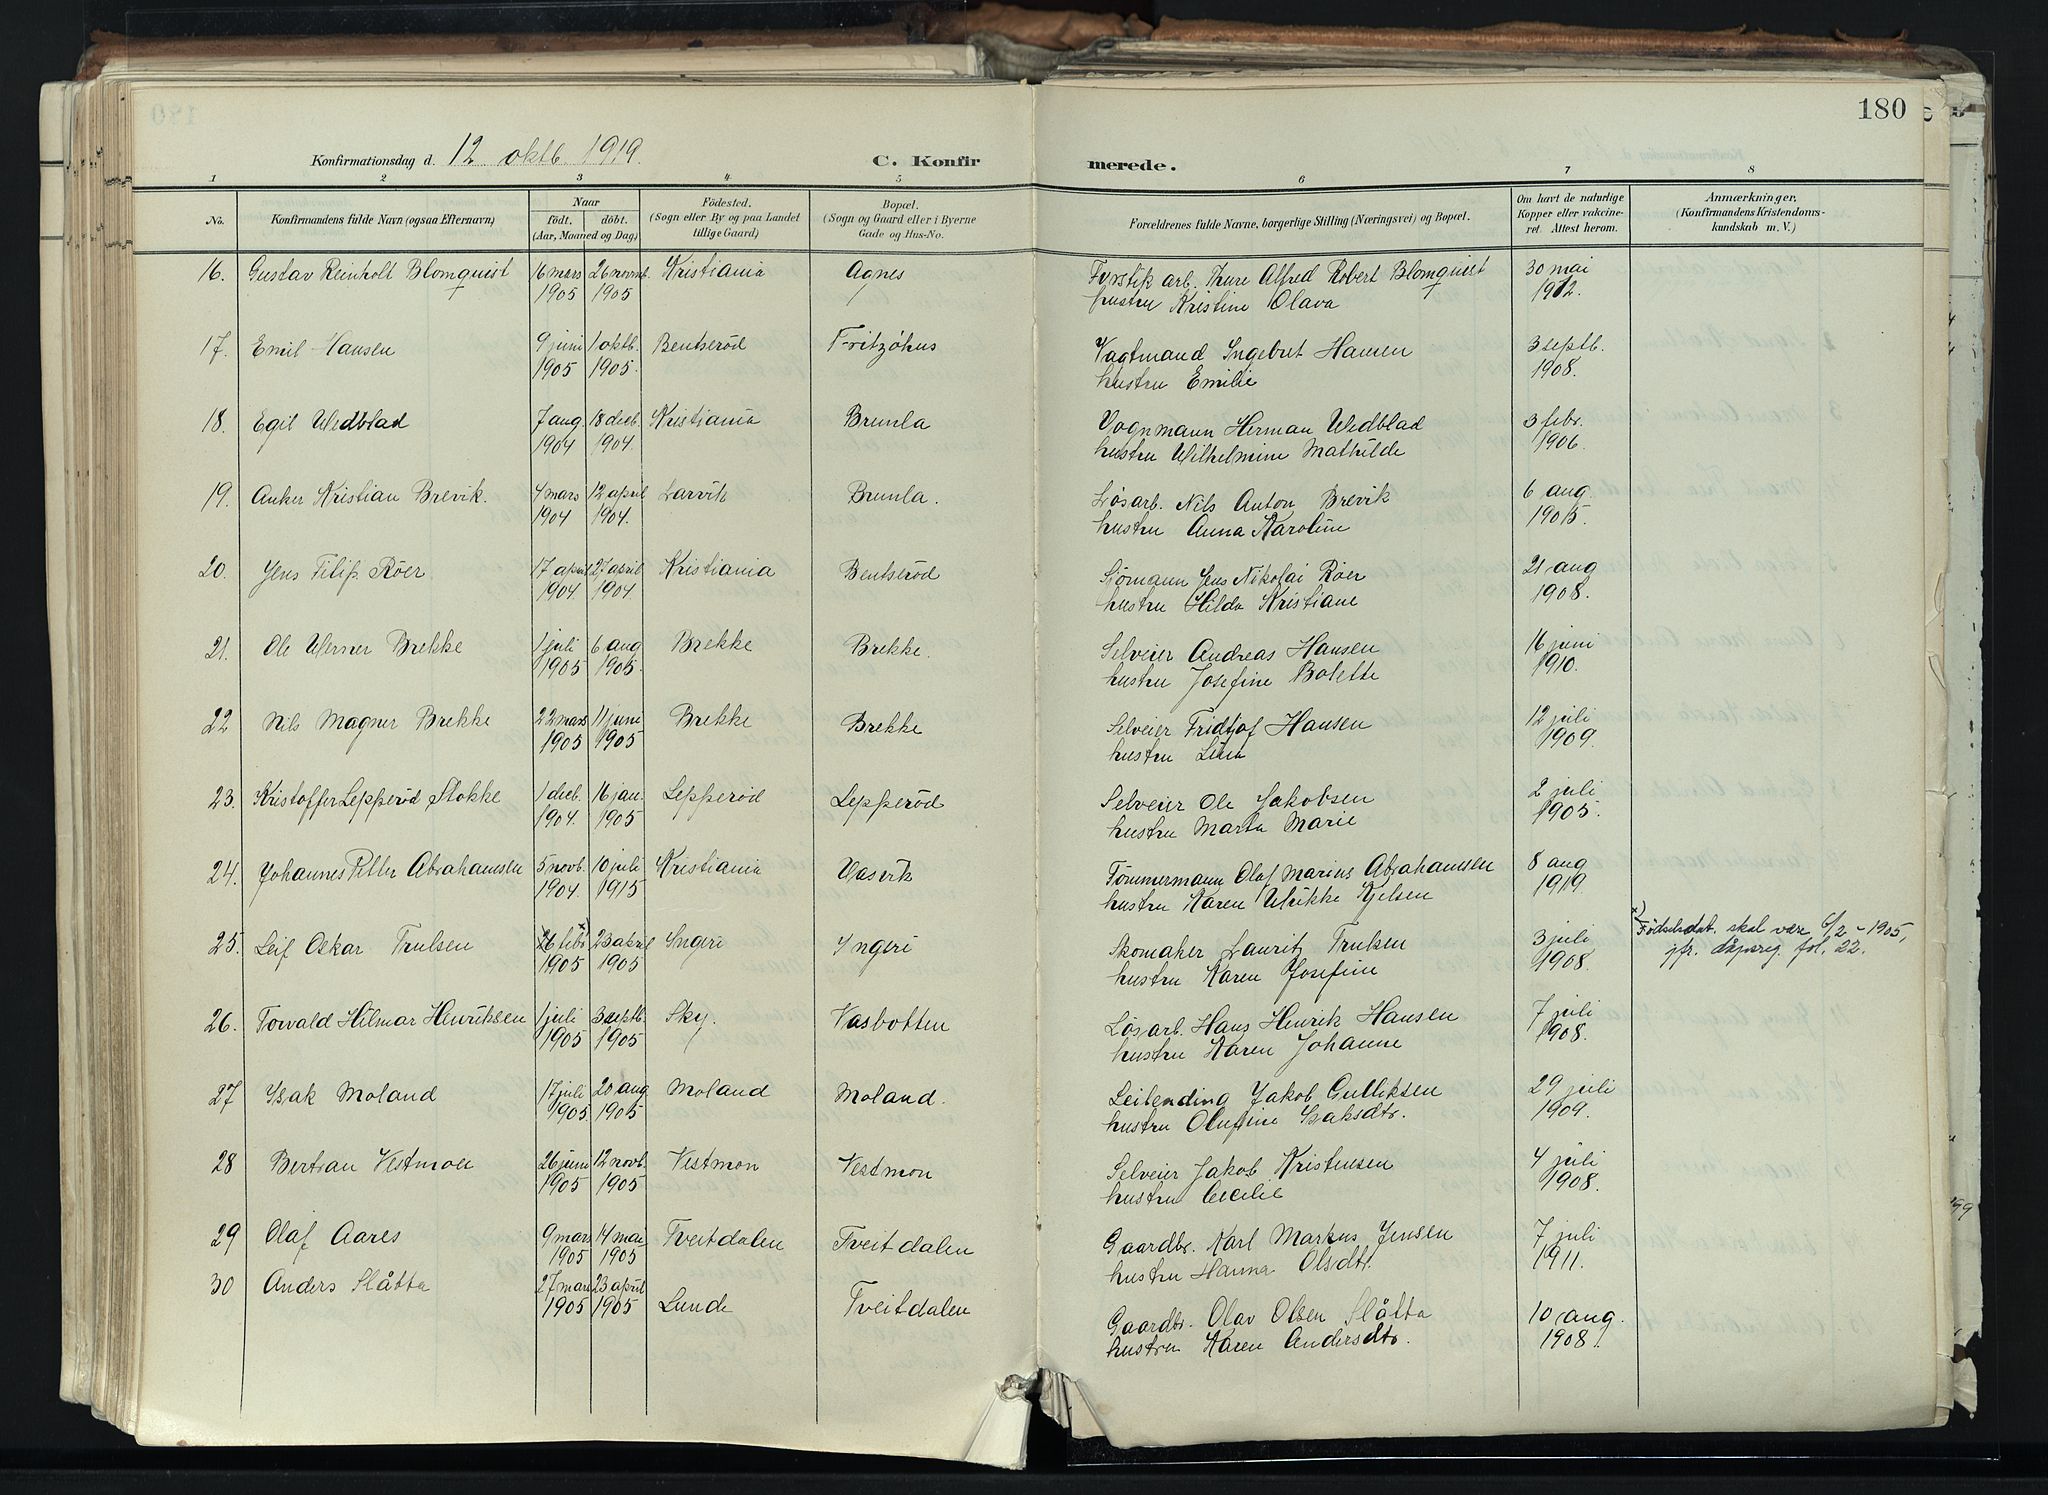 180
Konfirmationsdag d. 12 oktb. 1919.
C. Konfirmerede.
1 2 3 4 5 6 7 8
No.
Konfirmandens fulde Navn (ogsaa Efternavn)
Naar
født. døbt.
(Aar, Maaned og Dag)
Fødested.
(Sogn eller By og paa Landet
tillige Gaard)
Bopæl.
(Sogn og Gaard eller i Byerne
Gade og Hus-No.
Forældrenes fulde Navne, borgerlige Stilling (Næringsvei) og Bopæl.
Om havt de naturlige
Kopper eller vakcine-
ret. Attest herom.
Anmærkninger.
(Konfirmandens Kristendoms-
kundskab m. V.)
16. Gustav Reinholt Blomquist 16 mars 26 novmb. Kristiania Agnes Fyrstik arb. Thure Alfred Robert Blomquist 30 mai
1905 1905 hustru Kristine Olava 1912.
17. Emil Hansen 9 juni 1 oktb. Bentserød Fritzøhus Vagtmand Ingebret Hansen 3 septb.
1905 1905. hustru Emilie 1908.
18. Egil Wedblad 7 aug. 18 decb. Kristiania Brunla Vognmann Herman Wedblad 3 febr.
1904 1904. hustru Wilhelmine Mathilde 1906.
19. Anker Kristian Brevik. 4 mars 12 april Larvik Brunla. Løsarb. Nils Anton Brevik 6 aug.
1904 1904. hustru Anna Karoline 1905.
20. Jens Filip Røer 17 april 27 april Kristiania Bentserød Sjømann Jens Nikolai Røer 21 aug
1904. 1904. hustru Hilda Kristiane 1908.
21. Ole Werner Brekke 1 juli 6 aug Brekke Brekke. Selveier Andreas Hansen 16 juni
1905 1905. hustru Josefine Bolette 1910.
22 Nils Magner Brekke 22 mars 11 juni Brekke Brekke Selveier Fridtjof Hansen 12 juli
1905 1905 hustru Lina 1909.
23. Kristoffer Lepperød Stokke 1 decb. 16 jan. Lepperød Lepperød Selveier Ole Jakobsen 2 juli
1904. 1905 hustru Marta Marie 1905.
24. Johannes Petter Abrahamsen 5 novb. 10 juli Kristiania Vasvik Tømmermann Olaf Marius Abrahamsen 8 aug
1904. 1915 hustru Karen Ulrikke Kjelsen 1919.
25. Leif Oskar Trulsen x 26 feb. x) 23 april Yngeri Yngeri Skomaker Lauritz Trulsen 3 juli x) Fødselsdat. skal være 6/2 - 1905,
1905 1905 hustru Karen Josefine 1908. jfr. dåpsreg. fol. 22.
26. Torvald Hilmar Henriksen 1 juli 3 septb. Sky. Vasbotten Løsarb. Hans Henrik Hansen 7 juli
1905 1905 hustru Karen Johanne 1908.
27 Isak Moland 17 juli 20 aug Moland Moland. Leilending Jakob Gulliksen 29 juli
1905. 1905 hustru Olufine Isaksdtr. 1909.
28 Bertran Vestmoen 26 juni 12 novb. Vestmon Vestmon Selveier Jakob Kristensen 4 juli
1905 1905 hustru Cecilie 1908.
29 Olaf Aares 9 mars 14 mai Tveitdalen Tveitdalen Gaardbr. Karl Markus Jensen 7 juli
1905 1905 hustru Hanna Olsdtr. 1911.
30 Anders Slåtta 27 mars 23 april Lunde Tveitdalen Gaardbr. Olav Olsen Slåtta 10 aug.
1905 1905 hustru Karen Andersdtr. 1908.